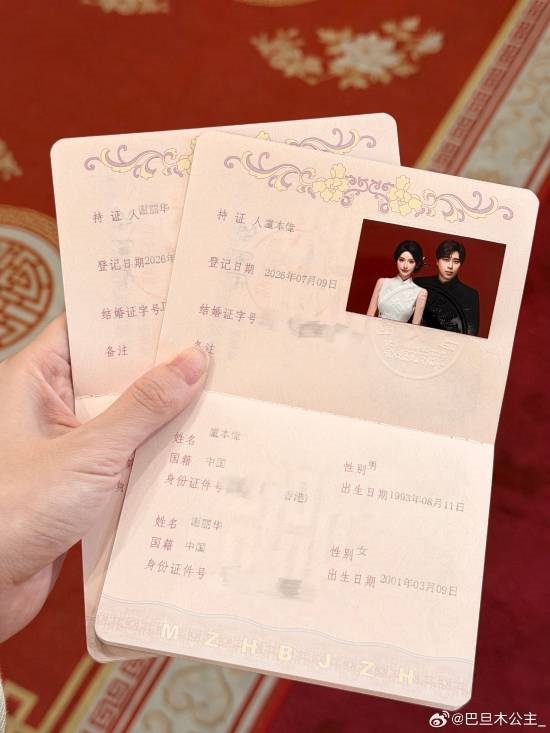 持证人谢丽华
登记日期2026年
结婚证字号J
备注
持证人董本儒
登记日期 2026年07月09日
结婚证字号
备注
姓名 董本儒
性别 男
国籍 中国
出生日期 1993年08月11日
身份证件号
香港)
姓名 谢丽华
性别 女
国籍 中国
出生日期 2001年03月09日
身份证件号
MZHBJZH
@巴旦木公主_